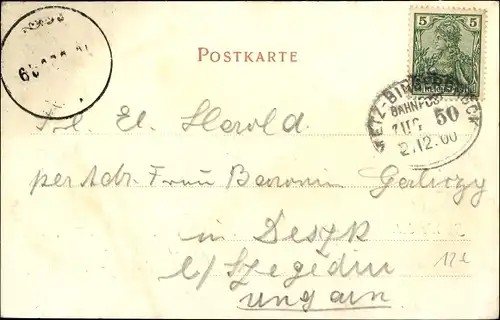 POSTKARTE
5
METZ-BINGERBRÜCK
BAHNPOST
ZUG 50
2.12.00
Frl. El. Herold
per Adr. Frau Baronin Gerliczy
in Deszk
b/ Szegedin
Ungarn